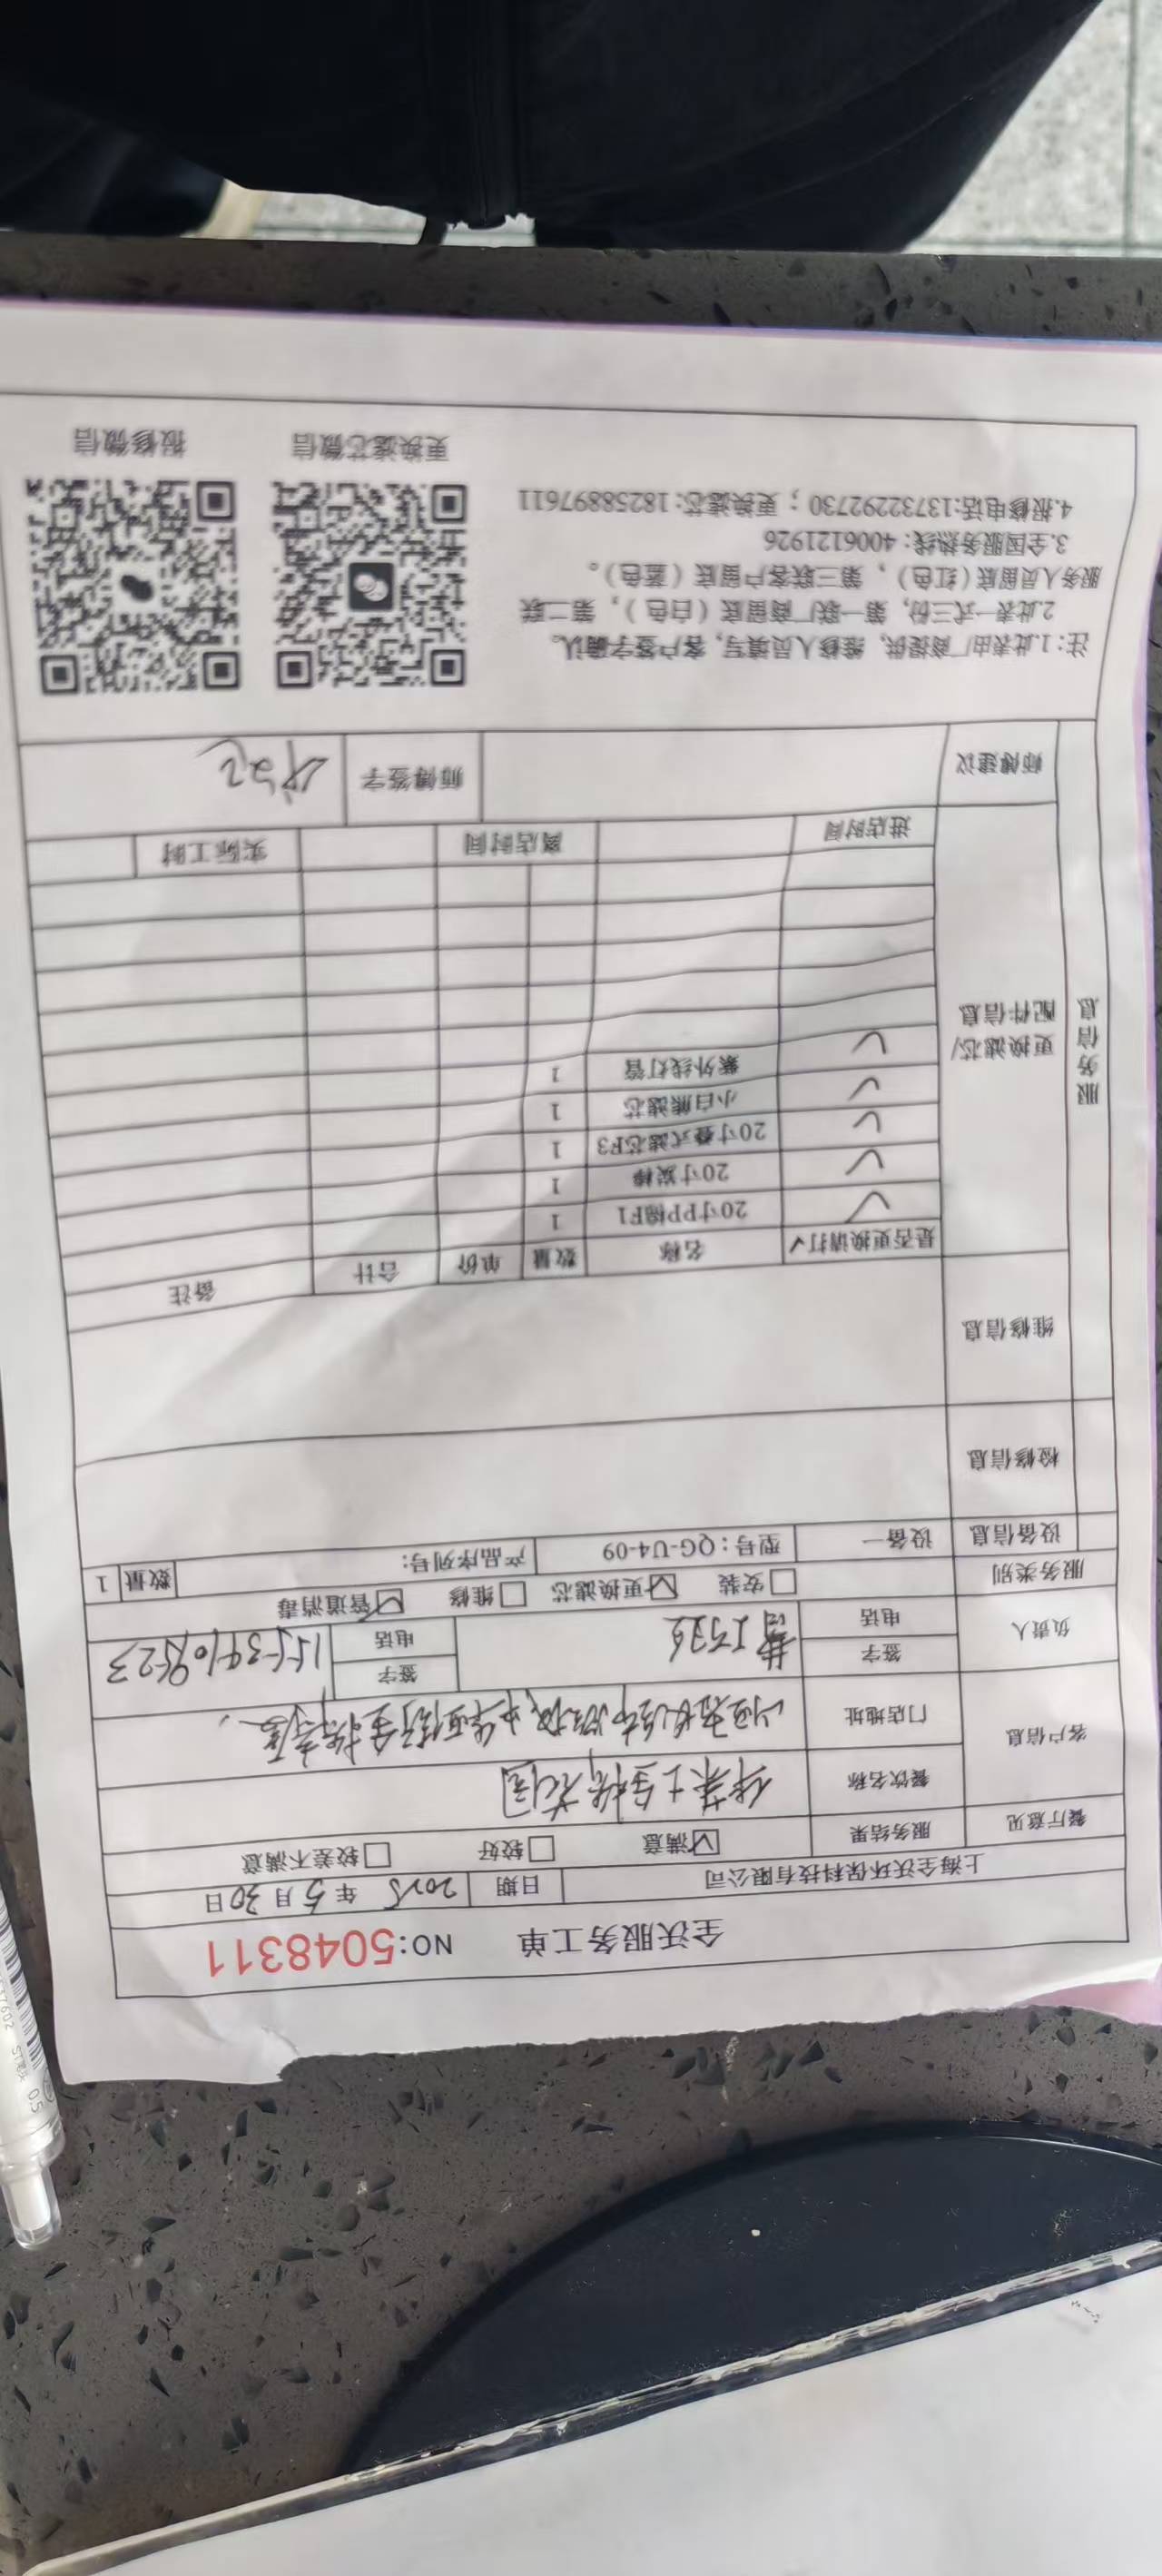 全沃服务工单 NO:5048311
上海全沃环保科技有限公司 日期 2025年5月30日
餐厅意见 服务结果 ☑满意 □较好 □较差不满意
客户信息 餐饮名称
门店地址
负责人 签字 签字
电话 电话 15539109523
服务类别 □安装 ☑更换滤芯 □维修 ☑管道消毒
设备信息 设备一 型号：QG-U4-09 产品序列号： 数量 1
检修信息
维修信息
服务信息
更换滤芯/配件信息
是否更换请打✓ 名称 数量 单价 合计 备注
✓ 20寸PP棉F1 1
✓ 20寸炭棒 1
✓ 20寸叠式滤芯F3 1
✓ 小白熊滤芯 1
✓ 紫外线灯管 1
进店时间 离店时间 实际工时
师傅建议 师傅签字
注：1.此表由厂商提供，维修人员填写，客户签字确认。
2.此表一式三份，第一联厂商留底（白色），第二联
服务人员留底（红色），第三联客户留底（蓝色）。
3.全国服务热线：4006121926
4.报修电话:13732292730；更换滤芯：18258897611
更换滤芯微信 报修微信
37602 ST笔头 0.5